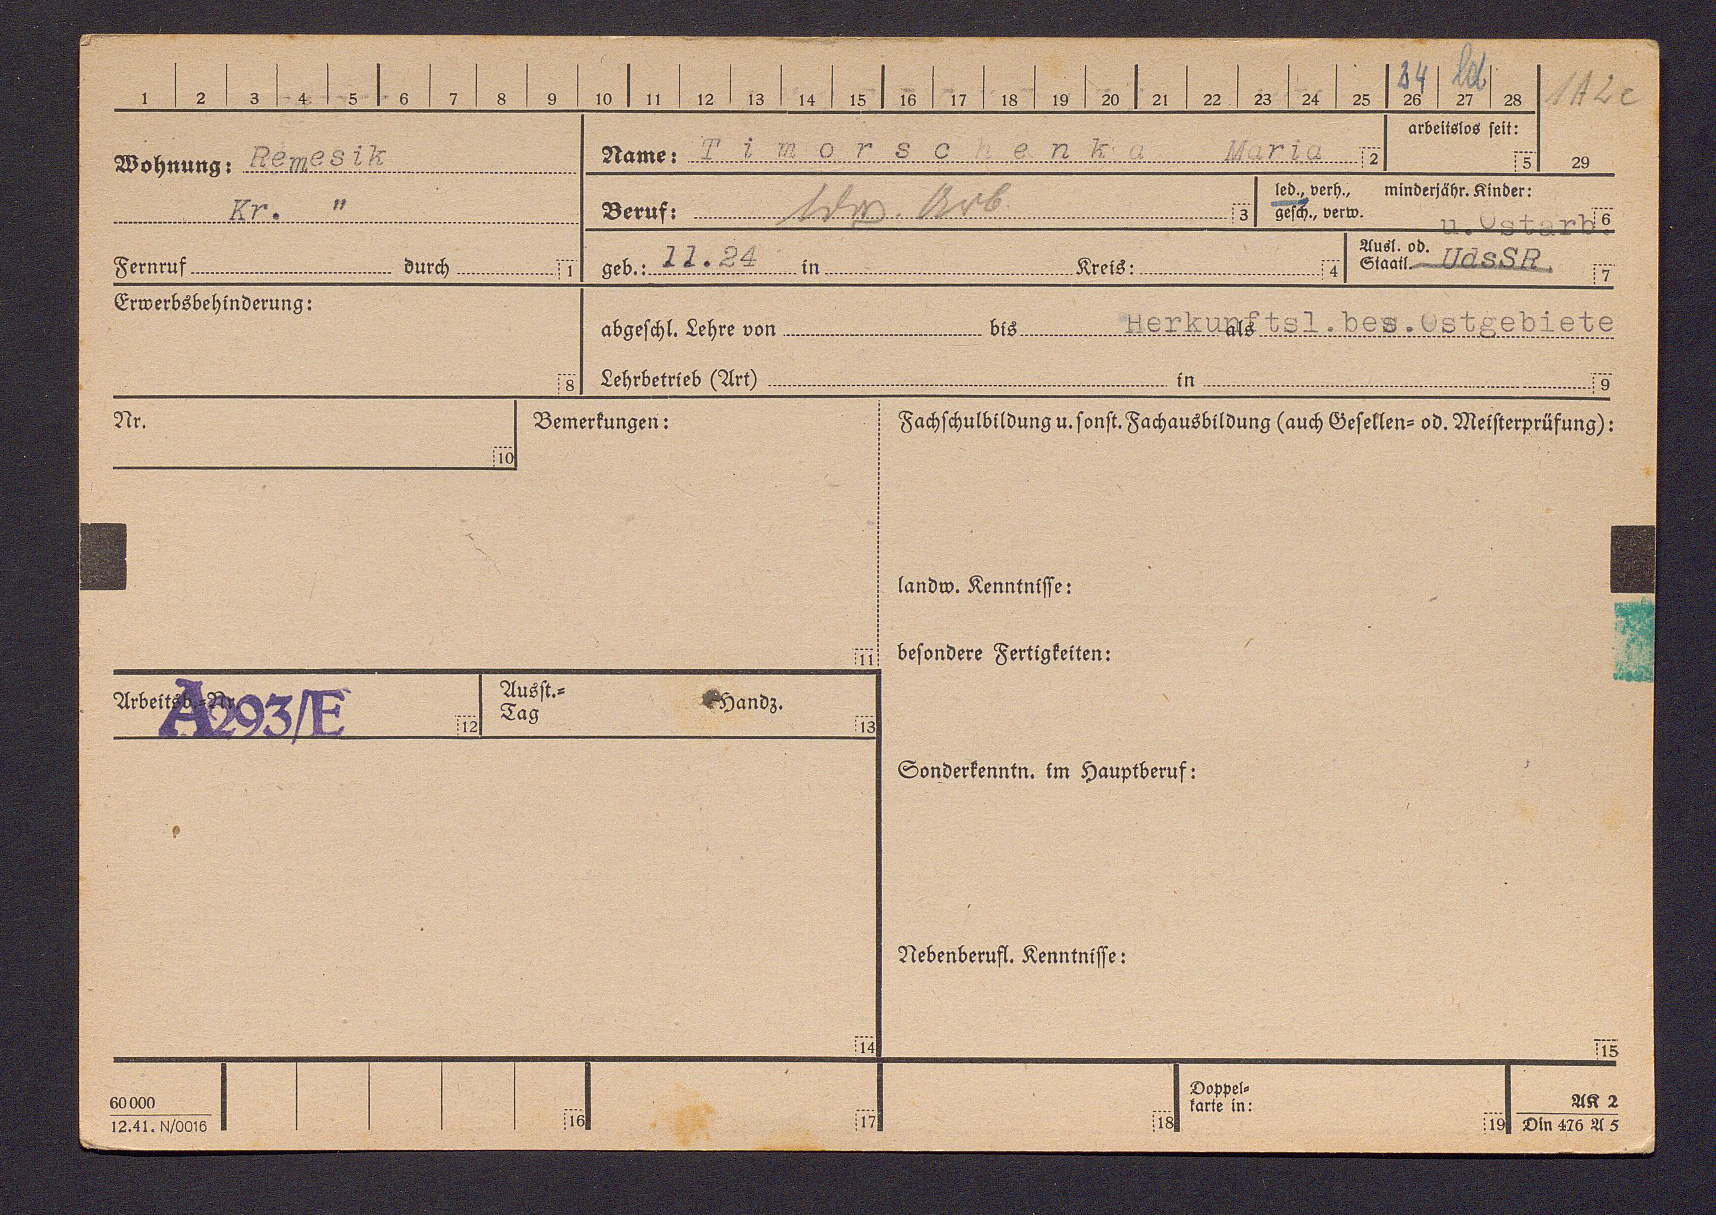 34 led
1 2 3 4 5 6 7 8 9 10 11 12 13 14 15 16 17 18 19 20 21 22 23 24 25 26 27 28 1A2c
Wohnung: Remesik
Kr. "
Fernruf durch 1
Name: Timorschenka Maria 2
arbeitslos seit: 5
29
Beruf: 3
led., verh., gesch., verw.
minderjähr. Kinder: 6
geb.: 11.24 in Kreis: 4
u.Ostarb.
Ausl. od. Staatl. UdsSR. 7
Erwerbsbehinderung: 8
Herkunftsl.bes.Ostgebiete
abgeschl. Lehre von bis als
Lehrbetrieb (Art) in 9
Nr. 10
Bemerkungen: 11
Fachschulbildung u. sonst. Fachausbildung (auch Gesellen- od. Meisterprüfung):
landw. Kenntnisse:
besondere Fertigkeiten:
Arbeitsb.-Nr. A293/E 12
Ausst.-Tag Handz. 13
Sonderkenntn. im Hauptberuf:
Nebenberufl. Kenntnisse:
14
15
60000
12.41. N/0016
16
17
18
Doppelkarte in: 19
AK 2
Din 476 A 5